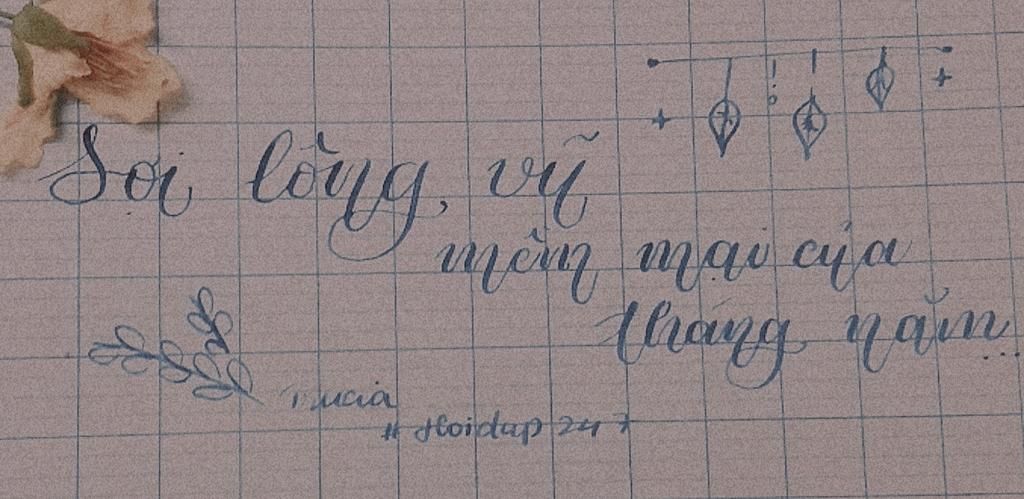 Sợi lông, vũ
mềm mại của
tháng năm...
# Hoidap 247